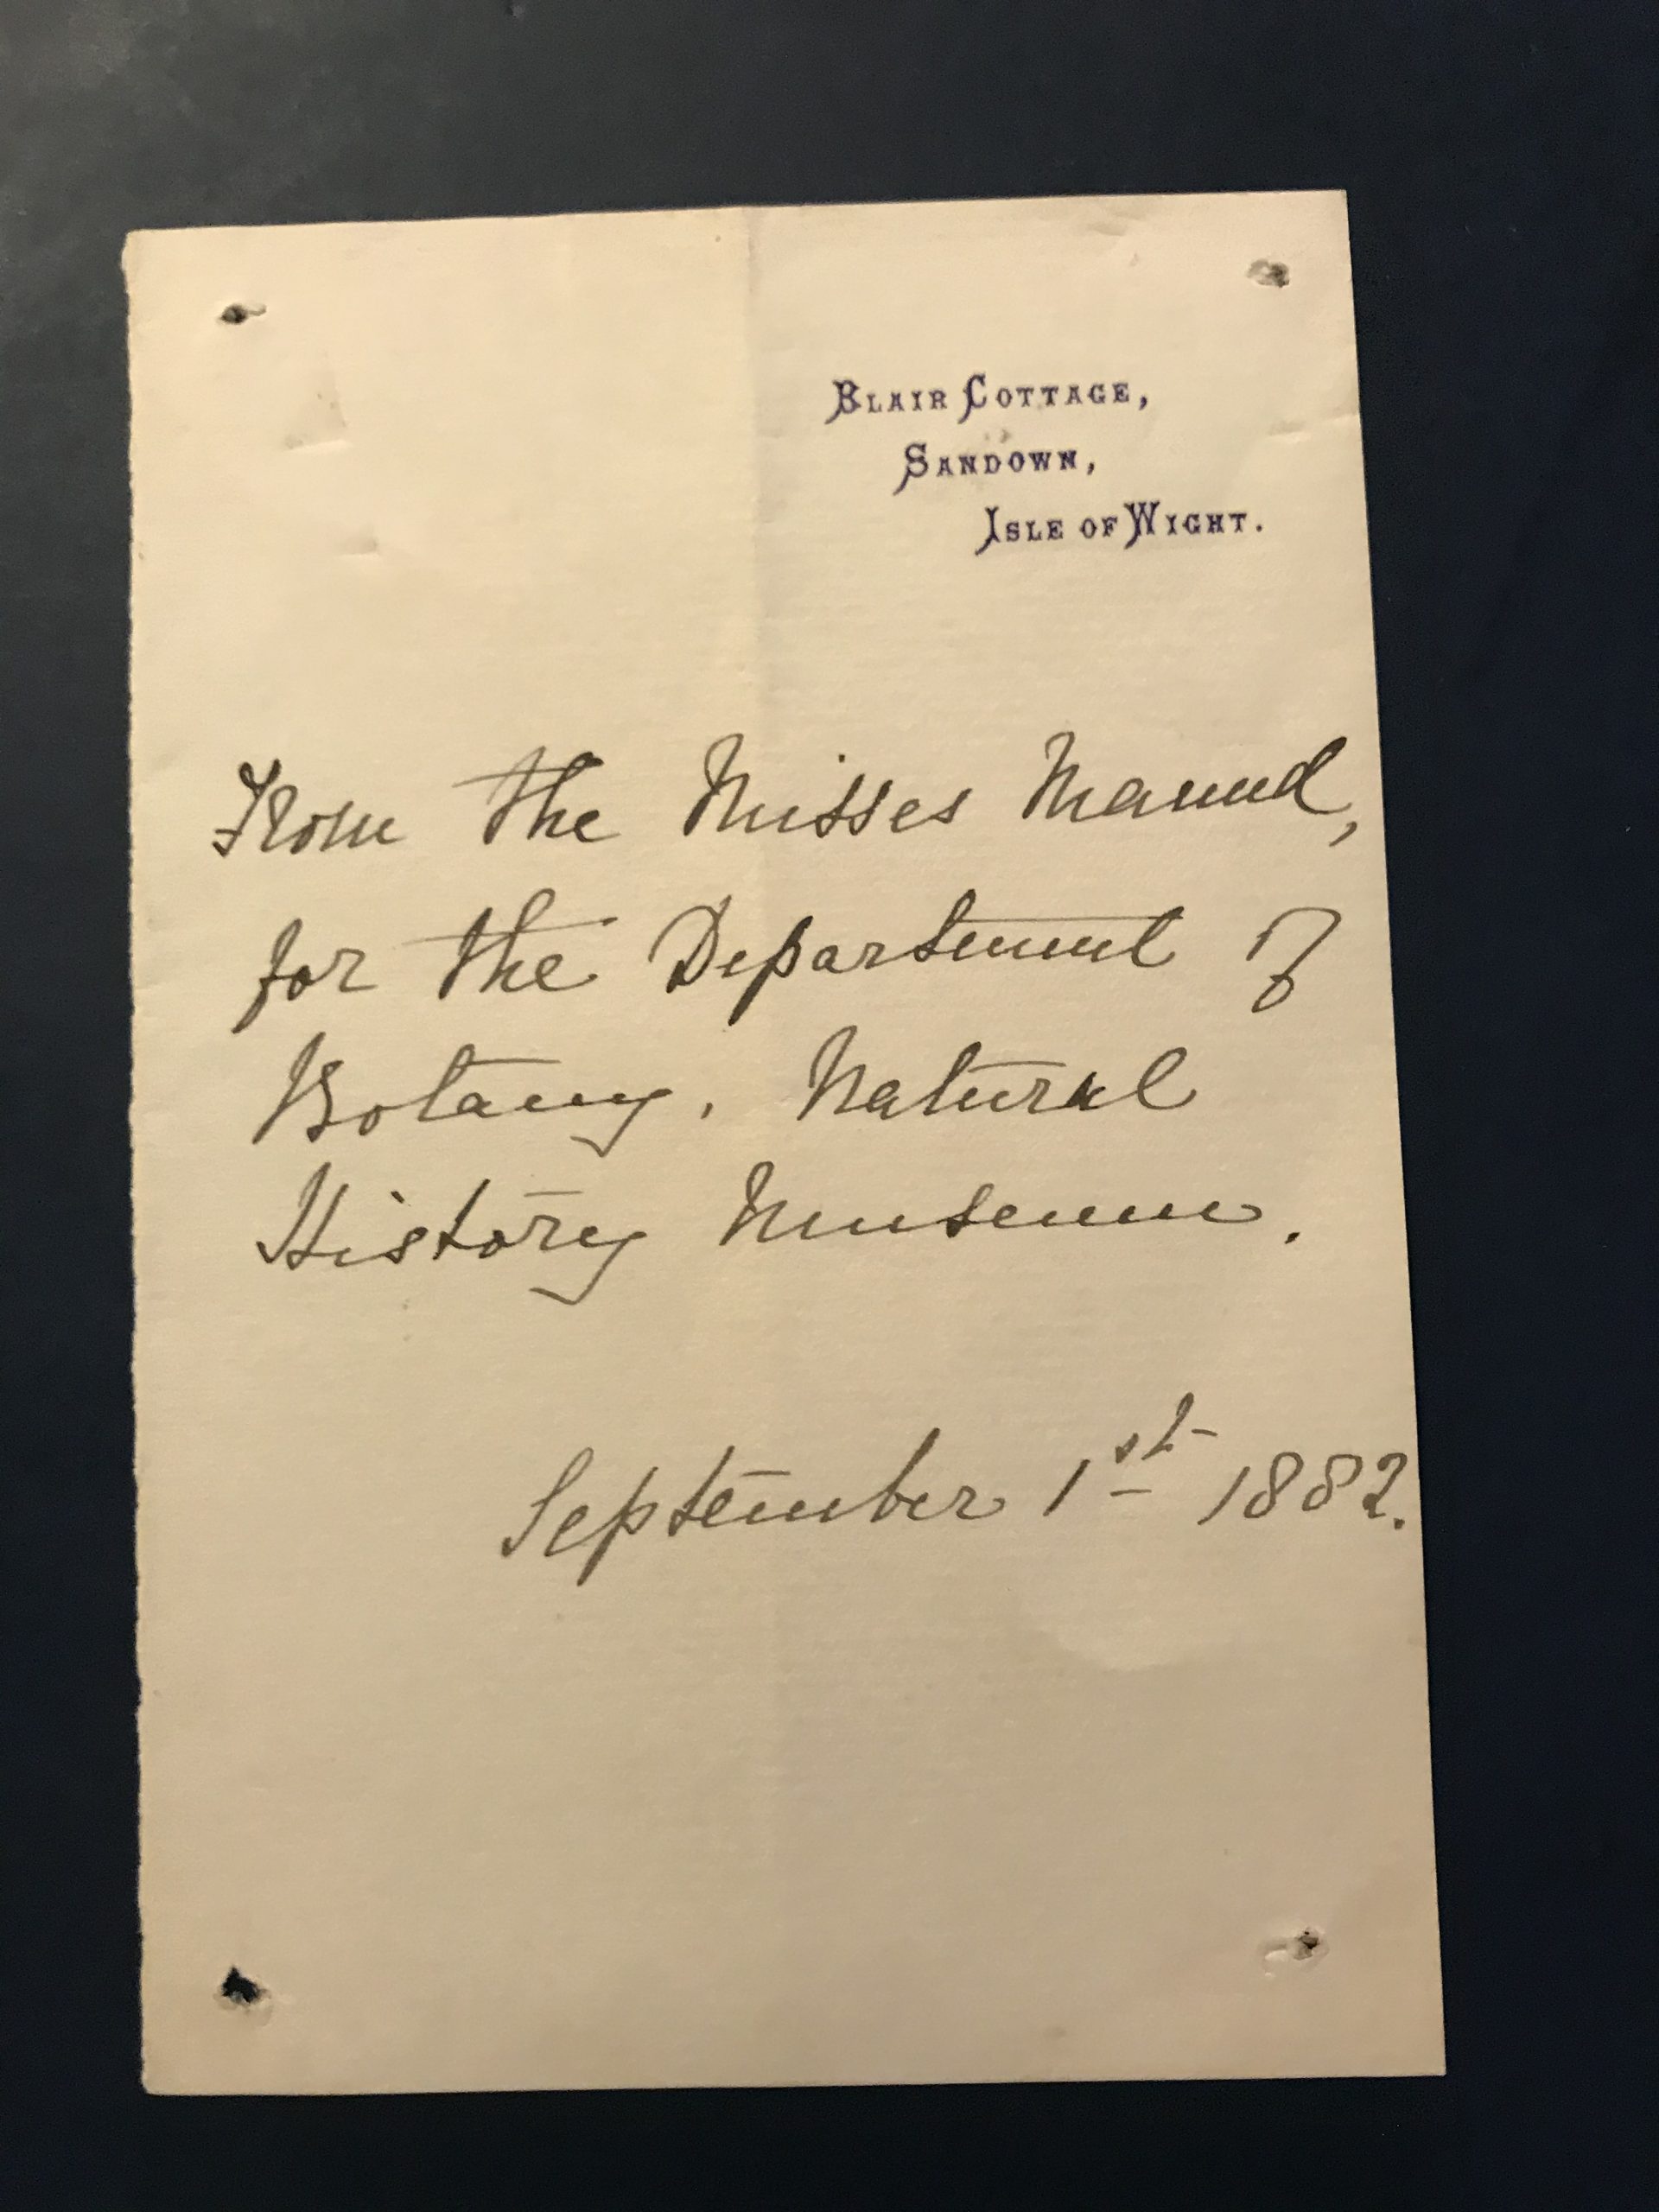 Blair Cottage,
Sandown,
Isle of Wight.
From the Misses Maund,
for the Department of
Botany. Natural
History Museum.
September 1st 1882.